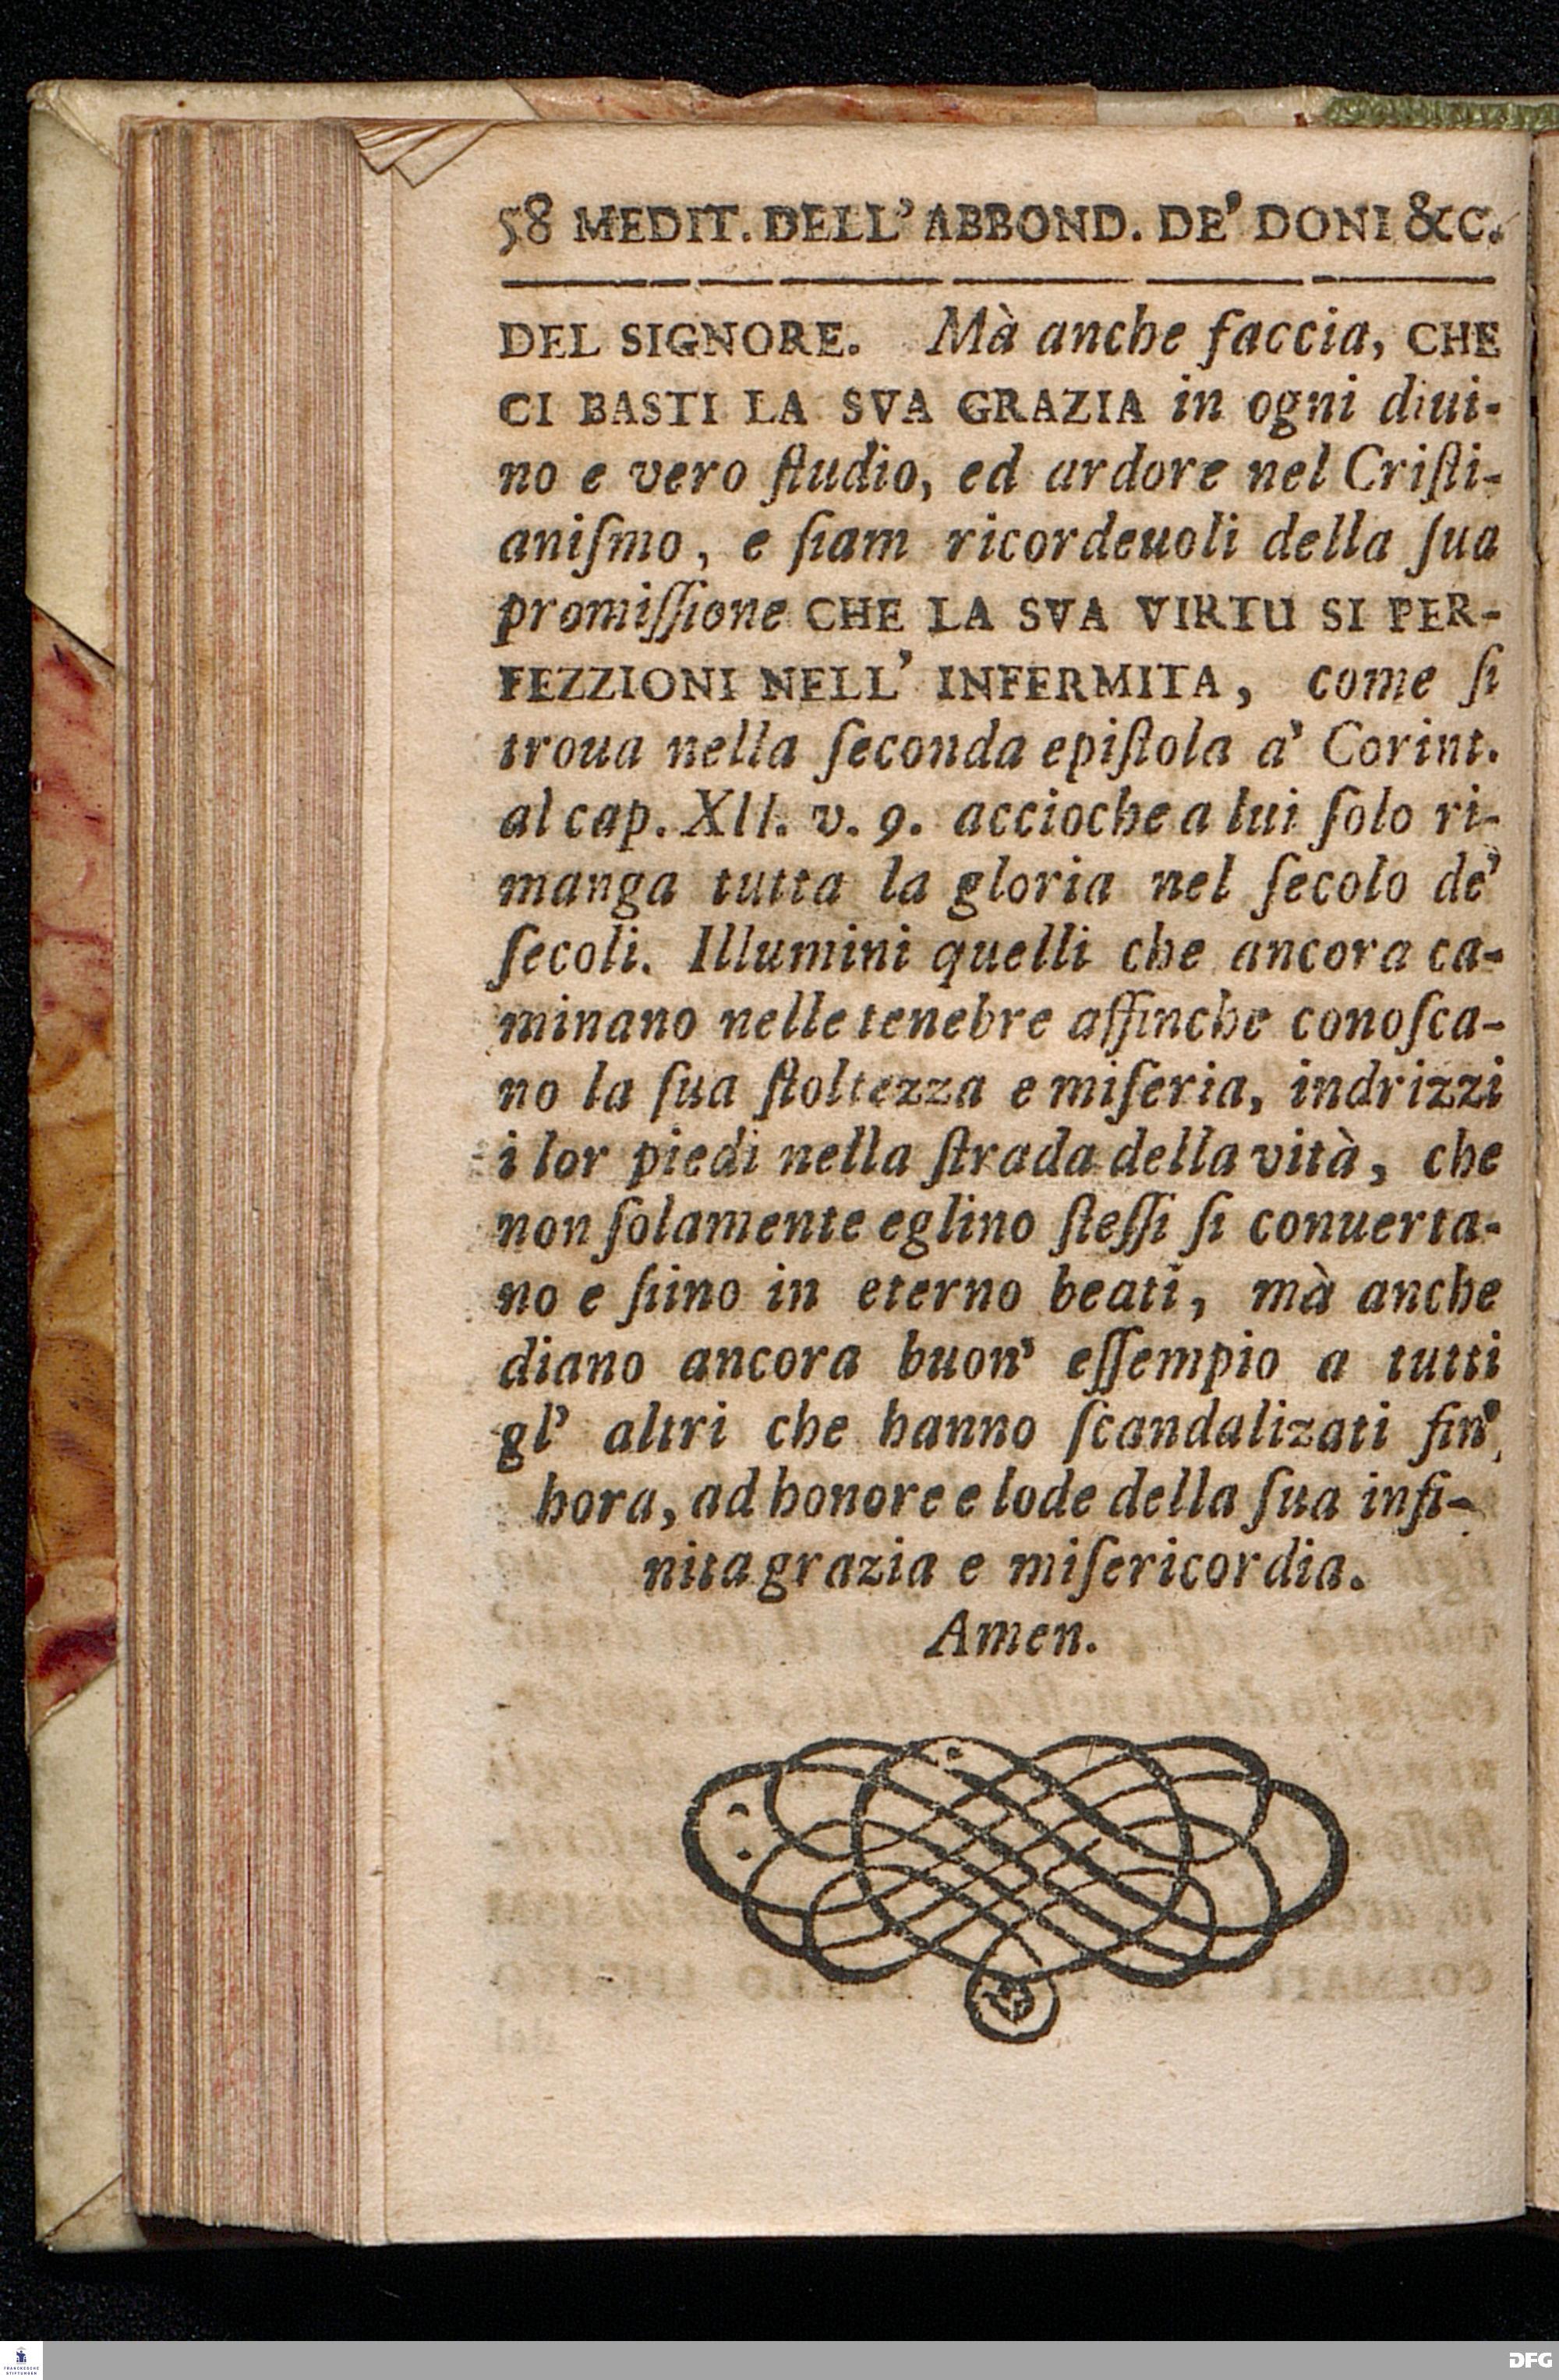 58 MEDIT. DELL' ABBOND. DE' DONI &C.
DEL SIGNORE. Mà anche faccia, CHE
CI BASTI LA SVA GRAZIA in ogni diui-
no e vero ſtudio, ed ardore nel Criſti-
aniſmo, e ſiam ricordeuoli della ſua
promiſſione CHE LA SVA VIRTU SI PER-
FEZZIONI NELL' INFERMITA, come ſi
troua nella ſeconda epiſtola a' Corint.
al cap. XII. v. 9. accioche a lui ſolo ri-
manga tutta la gloria nel ſecolo de'
ſecoli. Illumini quelli che ancora ca-
minano nelle tenebre affinche conoſca-
no la ſua ſtoltezza e miſeria, indrizzi
i lor piedi nella ſtrada della vità, che
non ſolamente eglino ſteſſi ſi conuerta-
no e ſiino in eterno beati, mà anche
diano ancora buon' eſſempio a tutti
gl' altri che hanno ſcandalizati fin'
hora, ad honore e lode della ſua infi-
nita grazia e miſericordia.
Amen.
FRANCKESCHE
STIFTUNGEN
DFG